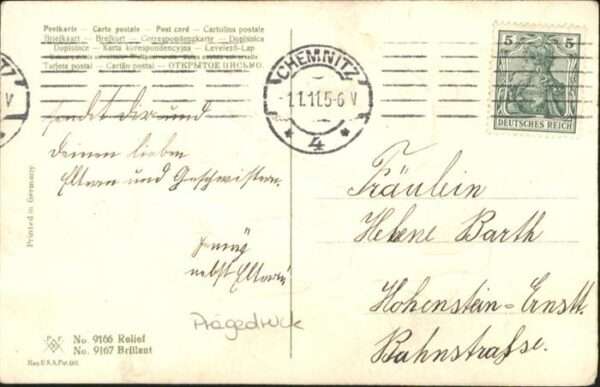 Postkarte — Carte postale — Post card — Cartolina postale
Briefkaart — Brefkort — Correspondenzkarte — Dopisnica
Dopisnice — Karta korespondencyjna — Levelező-Lap
Tarjeta postal — Cartão postal — ОТКРЫТОЕ ПИСЬМО.
CHEMNITZ
1.1.11.5-6 V
* 4 *
TZ
V
5 5
DEUTSCHES REICH
sendet dir und
deinen lieben
Eltern und Geschwistern.
nebst Eltern
Prägedruck
Fräulein
Helene Barth
Hohenstein-Ernstt.
Bahnstraße.
Printed in Germany
No. 9166 Relief
No. 9167 Brillant